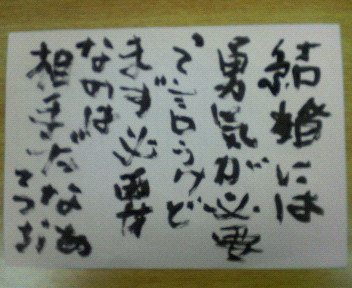 結婚には
勇気が必要
で言うけど
まず必要
なのは
相手だなあ
みつお